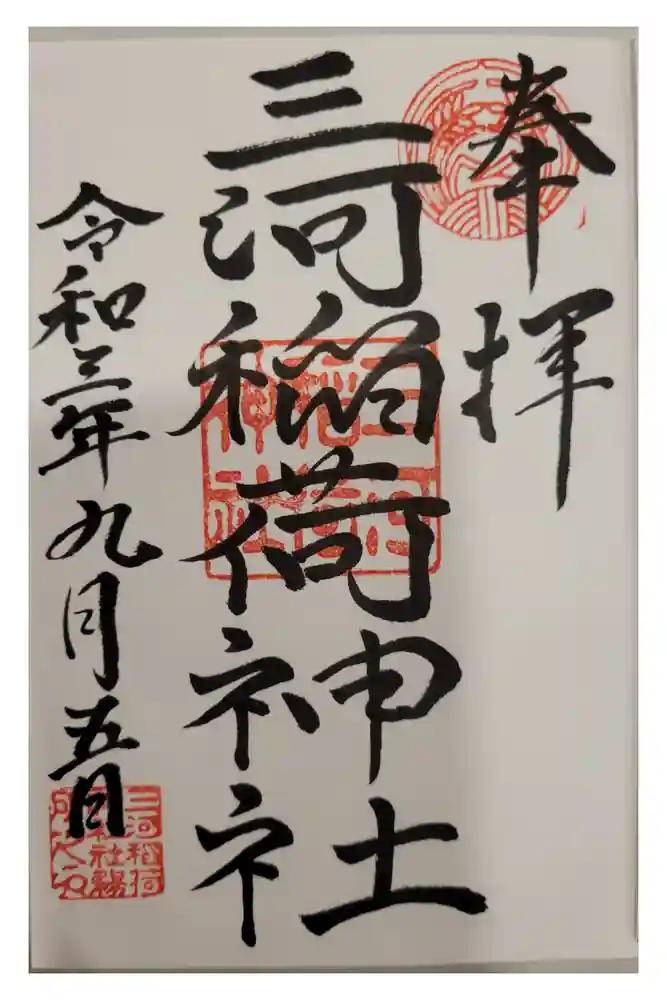 奉拝
三河稲荷神社
令和三年九月五日
三河稲荷神社
三河稲荷